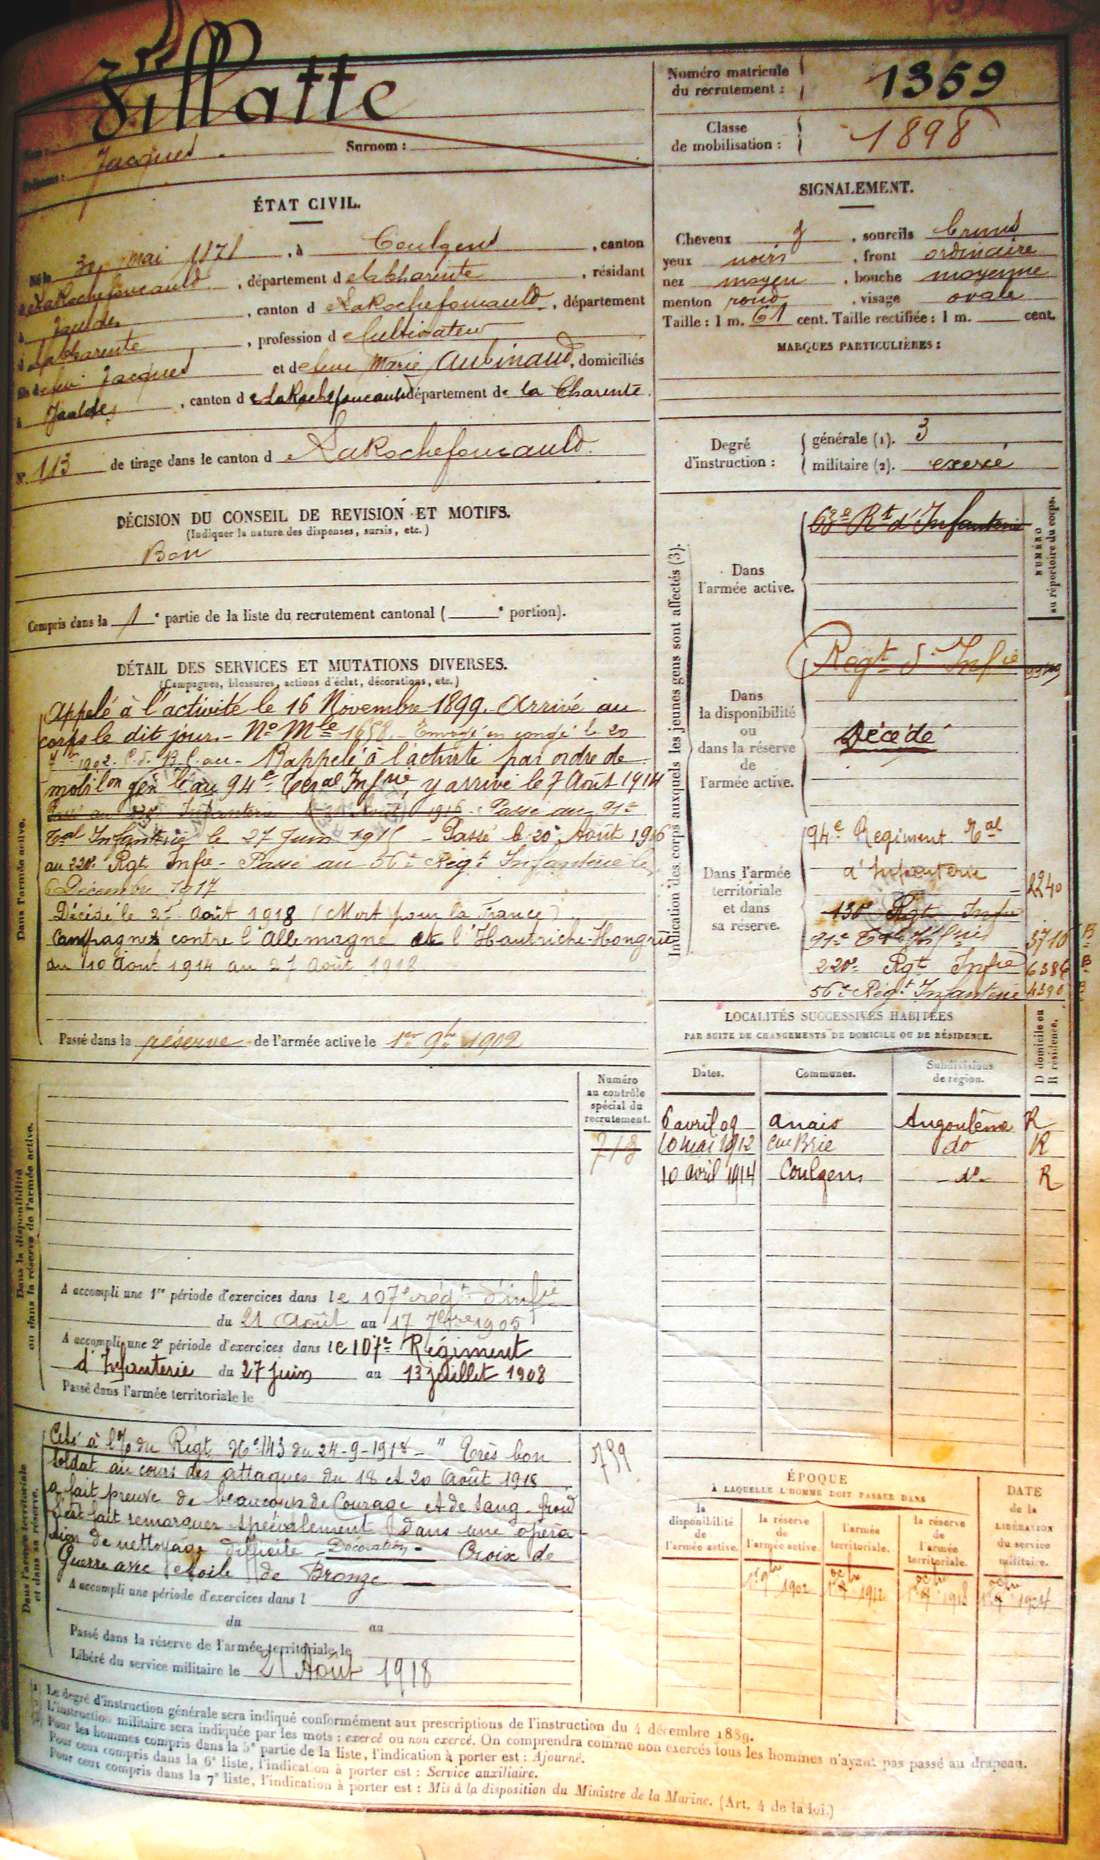 Villatte
Jacques
Surnom :
Numéro matricule
du recrutement :
1359
Classe
de mobilisation :
1898
ÉTAT CIVIL.
mai 1878, à Coulgens, canton
de LaRochefoucauld, département de la Charente, résidant
à Jauldes, canton de LaRochefoucauld, département
de la Charente, profession de Cultivateur
fils de feu Jacques et de feue Marie Aubinaud, domiciliés
à Jauldes, canton de LaRochefoucauld département de la Charente.
N° 113 de tirage dans le canton de LaRochefoucauld.
SIGNALEMENT.
Cheveux, sourcils bruns
yeux noirs, front ordinaire
nez moyen, bouche moyenne
menton rond, visage ovale
Taille : 1 m. 61 cent. Taille rectifiée : 1 m. cent.
MARQUES PARTICULIÈRES :
Degré
d'instruction :
générale (1). 3
militaire (2). exercé
DÉCISION DU CONSEIL DE REVISION ET MOTIFS.
(Indiquer la nature des dispenses, sursis, etc.)
Bon
Compris dans la 1e partie de la liste du recrutement cantonal ( e portion).
DÉTAIL DES SERVICES ET MUTATIONS DIVERSES.
(Campagnes, blessures, actions d'éclat, décorations, etc.)
Dans l'armée active.
Appelé à l'activité le 16 Novembre 1899. Arrivé au
corps le dit jour. - No Mle 1658. Envoyé en congé le 20
1902. C.d.B.C. acc. - Rappelé à l'activité par ordre de
mobilon génle au 94e Teral Infrie, y arrivé le 7 Août 1914
Passé au 91e
Tal Infanterie le 27 Juin - Passé le 20 Août 1916
au 220e Rgt Infie - Passé au 56e Régt Infanterie le
6 Décembre 1917
Décédé le 21 Août 1918 (Mort pour la France)
Campagnes contre l'Allemagne et l'Hautriche-Hongrie
du 10 Août 1914 au 21 Août 1918
Passé dans la réserve de l'armée active le 1er 9bre 1902
Indication des corps auxquels les jeunes gens sont affectés (3).
NUMÉRO
au répertoire du corps.
Dans
l'armée active.
63e Rt d'Infanterie
Dans
la disponibilité
ou
dans la réserve
de
l'armée active.
Regt d'Infie
Décédé
Dans l'armée
territoriale
et dans
sa réserve.
94e Régiment Tal
d'Infanterie
2240
130e Rgt Infie
91e Tal Infrie 3710 B
220e Rgt Infie 6386 B
56e Régt Infanterie 4390 B
LOCALITÉS SUCCESSIVES HABITÉES
PAR SUITE DE CHANGEMENTS DE DOMICILE OU DE RÉSIDENCE.
D domicile ou
R résidence.
Dates.
Communes.
Subdivisions
de région.
6 avril 09 Anais Angoulême R
10 mai 1912 Brie do R
10 avril 1914 Coulgens do R
Numéro
au contrôle
spécial du
recrutement.
718
Dans la disponibilité
ou dans la réserve de l'armée active.
A accompli une 1re période d'exercices dans le 107e régt d'infie
du 21 Août au 17 7bre 1905
A accompli une 2e période d'exercices dans le 107e Régiment
d'Infanterie du 27 Juin au 13 juillet 1908
Passé dans l'armée territoriale le
Dans l'armée territoriale
et dans sa réserve.
Cité à l'O/ du Régt No 143 du 24-9-1918 - " Très bon
soldat au cours des attaques du 18 et 20 Août 1918
a fait preuve de beaucoup de Courage et de Sang-froid
s'est fait remarquer spécialement dans une opéra
tion de nettoyage difficile - Décoration - Croix de
Guerre avec étoile de Bronze
759
A accompli une période d'exercices dans l
du au
Passé dans la réserve de l'armée territoriale le
Libéré du service militaire le 21 Août 1918
ÉPOQUE
À LAQUELLE L'HOMME DOIT PASSER DANS
la
disponibilité
de
l'armée active.
la réserve
de
l'armée active.
l'armée
territoriale.
la réserve
de
l'armée
territoriale.
DATE
de la
LIBÉRATION
du service
militaire.
1er 9bre 1902
1er octbre 1912
1er octbre 1918
1er octbre 1924
(1) Le degré d'instruction générale sera indiqué conformément aux prescriptions de l'instruction du 4 décembre 1889.
(2) L'instruction militaire sera indiquée par les mots : exercé ou non exercé. On comprendra comme non exercés tous les hommes n'ayant pas passé au drapeau.
(3) Pour les hommes compris dans la 5e partie de la liste, l'indication à porter est : Ajourné.
Pour ceux compris dans la 6e liste, l'indication à porter est : Service auxiliaire.
Pour ceux compris dans la 7e liste, l'indication à porter est : Mis à la disposition du Ministre de la Marine. (Art. 4 de la loi.)